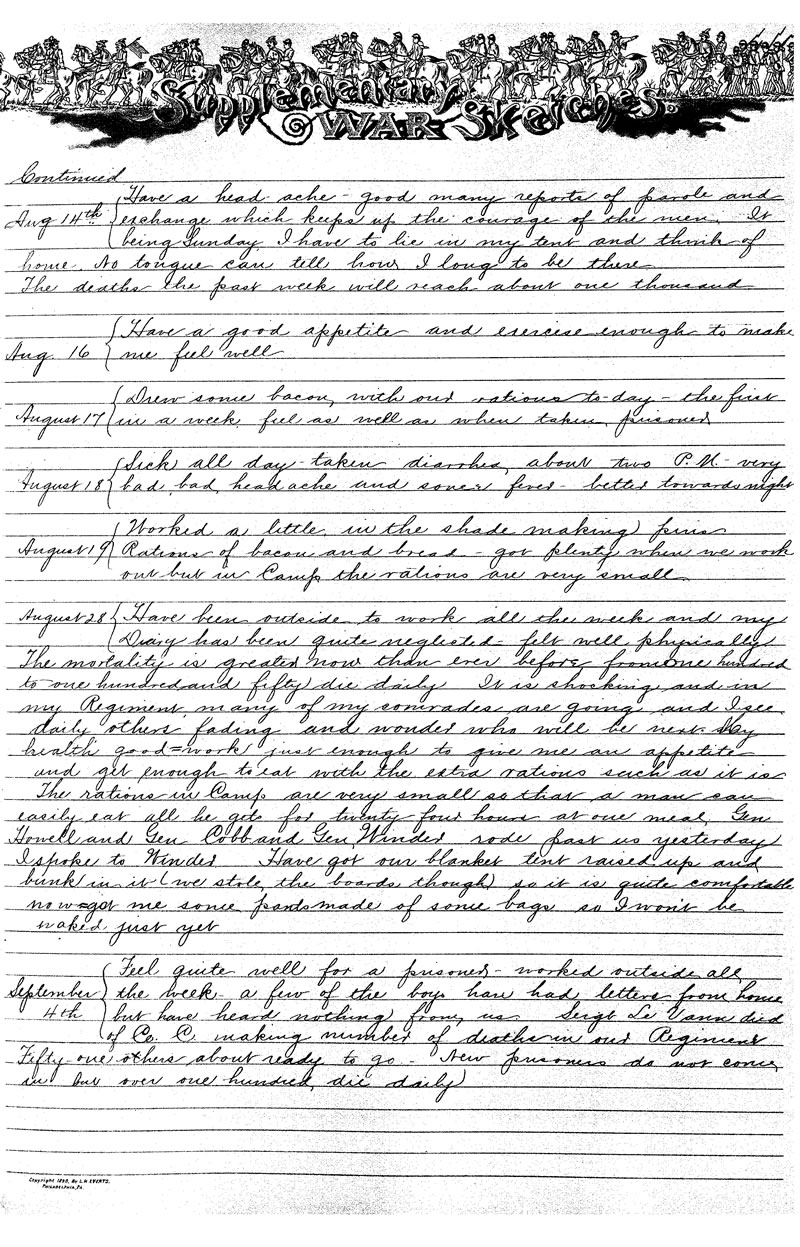 Supplementary
WAR Sketches.
Continued
Have a head ache - good many reports of parole and
Aug 14th exchange which keeps up the courage of the men. It
being Sunday I have to lie in my tent and think of
home. No tongue can tell how I long to be there
The deaths the past week will reach about one thousand
Have a good appetite and exercise enough to make
Aug. 16 me feel well
Drew some bacon, with our rations to-day - the first
August 17 in a week. feel as well as when taken prisoner
Sick all day - taken diarrhea, about two P.M. - very
August 18 bad, bad, head ache and some fever - better towards night
Worked a little in the shade making pins
August 19 Rations of bacon and bread - got plenty when we work
out but in Camp the rations are very small
August 28 Have been outside to work all the week and my
Diary has been quite neglected - felt well physically
The mortality is greater now than ever before from one hundred
to one hundred and fifty die daily It is shocking and in
my Regiment many of my comrades are going and I see
daily others fading and wonder who will be next. My
health good = work just enough to give me an appetite
and get enough to eat with the extra rations such as it is
The rations in Camp are very small so that a man can
easily eat all he gets for twenty four hours at one meal, Gen
Howell and Gen Cobb and Gen Winder rode past us yesterday
I spoke to Winder Have got our blanket tent raised up and
bunk in it (we stole the boards though) so it is quite comfortable
now = got me some pants made of some bags so I won't be
naked just yet
Feel quite well for a prisoner - worked outside all
September the week - a few of the boys have had letters from home
4th but have heard nothing from us. Sergt Le Vann died
of Co. C. making number of deaths in our Regiment
Fifty-one others about ready to go - New prisoners do not come
in but over one hundred die daily)
Copyright 1890, By L.H. EVERTS.
PHILADELPHIA, PA.